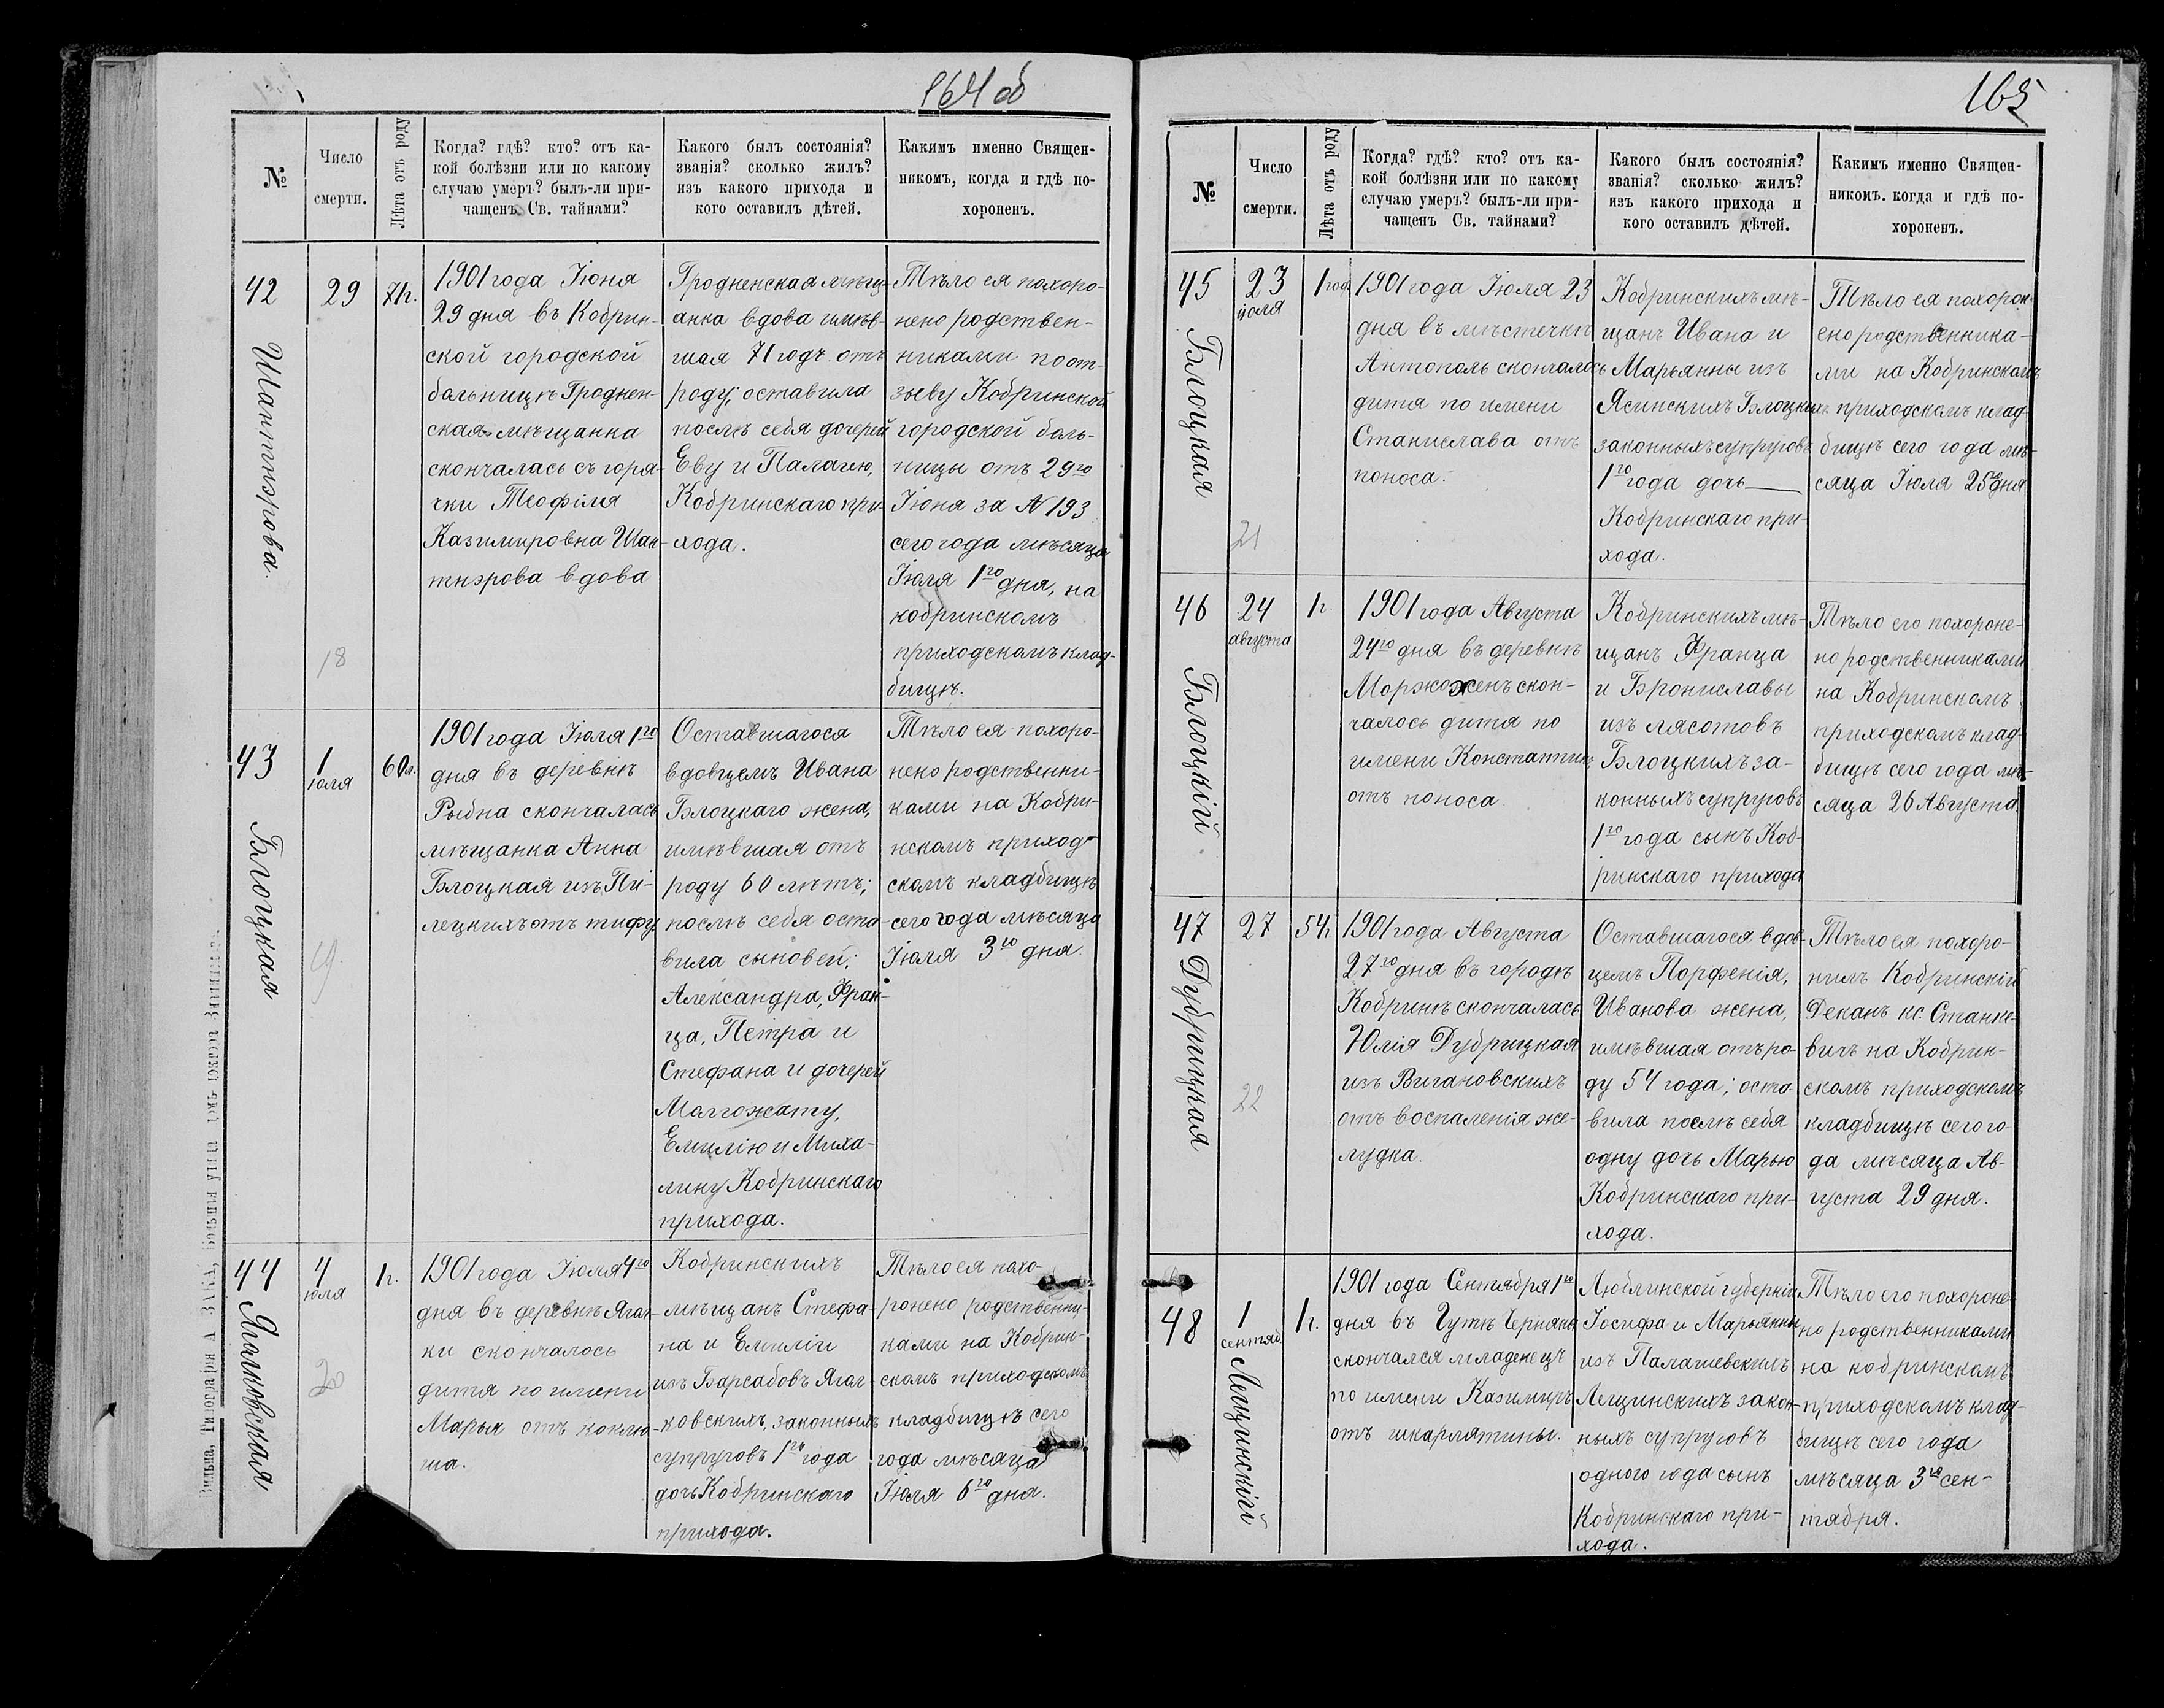 164 об
№
Число
смерти.
Лѣта отъ роду
Когда? гдѣ? кто? отъ ка-
кой болѣзни или по какому
случаю умеръ? былъ-ли при-
чащенъ Св. тайнами?
Какого былъ состоянія?
званія? сколько жилъ?
изъ какого прихода и
кого оставилъ дѣтей.
Какимъ именно Священ-
никомъ, когда и гдѣ по-
хороненъ.
42
Шантырова.
29
18
71г.
1901 года Іюня
29 дня въ Кобрин-
ской городской
больницѣ Гроднен-
ская мѣщанка
скончалась съ горя-
чки Теофіля
Казимировна Шан-
тырова вдова
Гродненская мѣщ-
анка вдова имѣв-
шая 71 годъ отъ
роду; оставила
послѣ себя дочерей
Еву и Палагею,
Кобринскаго при-
хода.
Тѣло ея похоро-
нено родствен-
никами по от-
зыву Кобринской
городской боль-
ницы отъ 29го
Іюня за № 193
сего года мѣсяца
Іюля 1го дня, на
кобринскомъ
приходскомъ клад-
бищѣ.
43
Блоцкая
1
іюля
19
60л.
1901 года Іюля 1го
дня въ деревнѣ
Рыбна скончалась
мѣщанка Анна
Блоцкая изъ Пи-
лецкихъ отъ тифу
Оставшагося
вдовцемъ Ивана
Блоцкаго жена,
имѣвшая отъ
роду 60 лѣтъ;
послѣ себя оста-
вила сыновей:
Александра, Фран-
ца, Петра и
Стефана и дочерей
Малгожату,
Емилію и Миха-
лину Кобринскаго
прихода.
Тѣло ея похоро-
нено родственни-
ками на Кобри-
нскомъ приход-
скомъ кладбищѣ
сего года мѣсяца
Іюля 3го дня.
44
Ягалковская
4
юля
20
1г.
1901 года Іюля 4го
дня въ деревнѣ Ягал-
ки скончалось
дитя по имени
Марья отъ коклю-
ша.
Кобринскихъ
мѣщанъ Стефа-
на и Емиліи
изъ Барсабовъ Ягал-
ковскихъ, законныхъ
супруговъ 1го года
дочь Кобринскаго
прихода.
Тѣло ея похо-
ронено родственни-
ками на Кобрин-
скомъ приходскомъ
кладбищѣ сего
года мѣсяца
Іюля 6го дня.
165
№
Число
смерти.
Лѣта отъ роду
Когда? гдѣ? кто? отъ ка-
кой болѣзни или по какому
случаю умеръ? былъ-ли при-
чащенъ Св. тайнами?
Какого былъ состоянія?
званія? сколько жилъ?
изъ какого прихода и
кого оставилъ дѣтей.
Какимъ именно Священ-
никомъ. когда и гдѣ по-
хороненъ.
45
Блоцкая
23
іюля
21
1 год.
1901 года Іюля 23
дня въ мѣстечкѣ
Антополь скончалось
дитя по имени
Станислава отъ
поноса.
Кобринскихъ мѣ-
щанъ Ивана и
Марьянны изъ
Ясинскихъ Блоцкихъ
законныхъ супруговъ
1го года дочь
Кобринскаго при-
хода.
Тѣло ея похорон-
ено родственника-
ми на Кобринскомъ
приходскомъ клад-
бищѣ сего года мѣ-
сяца Іюля 25го дня
46
Блоцкій
24
августа
1г.
1901 года Августа
24го дня въ деревнѣ
скон-
чалось дитя по
имени Константинъ
отъ поноса
Кобринскихъ мѣ-
щанъ Франца
и Брониславы
изъ Лясотовъ
Блоцкихъ за-
конныхъ супруговъ
1го года сынъ Коб-
ринскаго прихода
Тѣло его похороне-
но родственниками
на Кобринскомъ
приходскомъ клад-
бищѣ сего года мѣ-
сяца 26 Августа
47
Дубрицкая
27
22
54г.
1901 года Августа
27го дня въ городѣ
Кобринѣ скончалась
Юлія Дубрицкая
изъ Вигановскихъ
отъ воспаленія же-
лудка.
Оставшагося вдов-
цемъ Порфенія,
Иванова жена,
имѣвшая отъ ро-
ду 54 года; оста-
вила послѣ себя
одну дочь Марью
Кобринскаго при-
хода.
Тѣло ея похоро-
нилъ Кобринскій
Деканъ кс. Станке-
вичъ на Кобрин-
скомъ приходскомъ
кладбищѣ сего го-
да мѣсяца Ав-
густа 29 дня.
48
Лещинскій
1
сентяб.
1г.
1901 года Сентября 1го
дня въ Гутѣ Черняны
скончался младенецъ
по имени Казимиръ
отъ шкарлятины.
Люблинской губерніи
Іосифа и Марьянны
изъ Палашевскихъ
Лещинскихъ закон-
ныхъ супруговъ
одного года сынъ
Кобринскаго при-
хода.
Тѣло его похороне-
но родственниками
на кобринскомъ
приходскомъ клад-
бищѣ сего года
мѣсяца 3го сен-
тября.